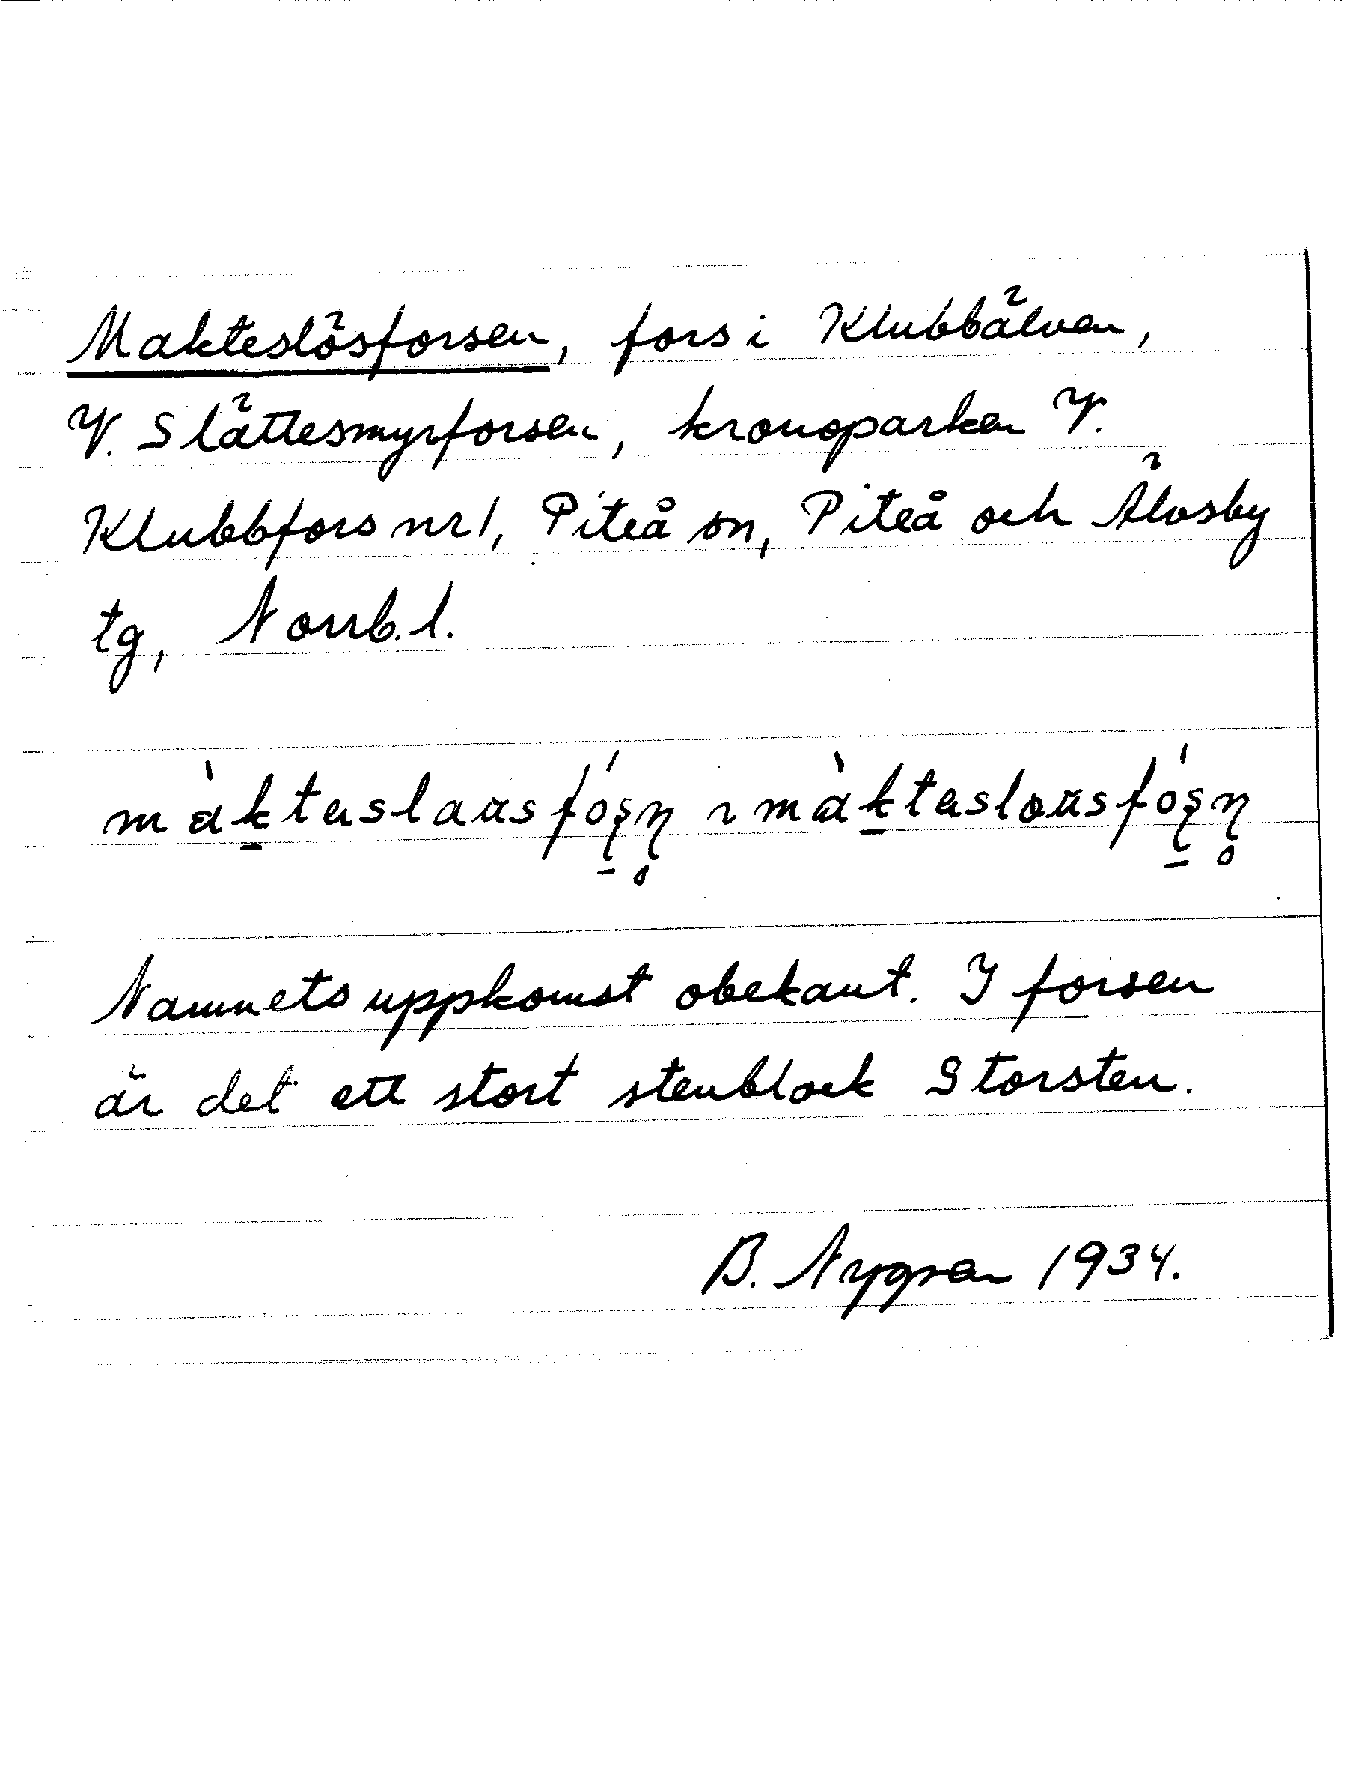 Makteslösforsen, fors i Klubbälven,
V. Slättesmyrforsen, kronoparken V.
Klubbfors nr 1, Piteå sn, Piteå och Älvsby
tg, Norrb. l.
màktaslausfóʂn̥ ~ màktaslousfóʂn̥
Namnets uppkomst obekant. I forsen
är det ett stort stenblock Storsten.
B. Nygren 1934.